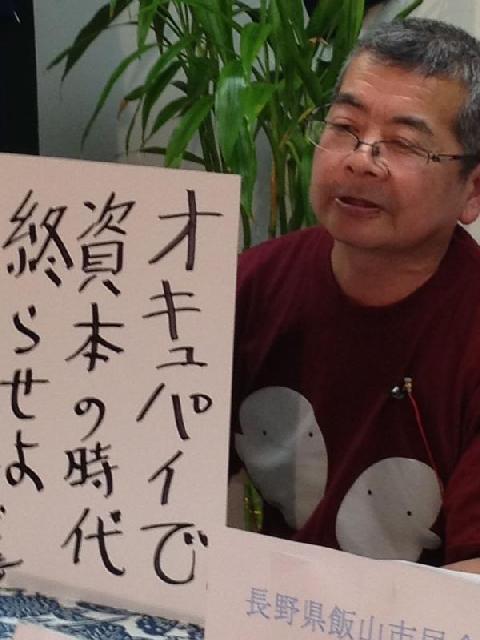 オキュパイで
資本の時代
終らせよ
長野県飯山市民